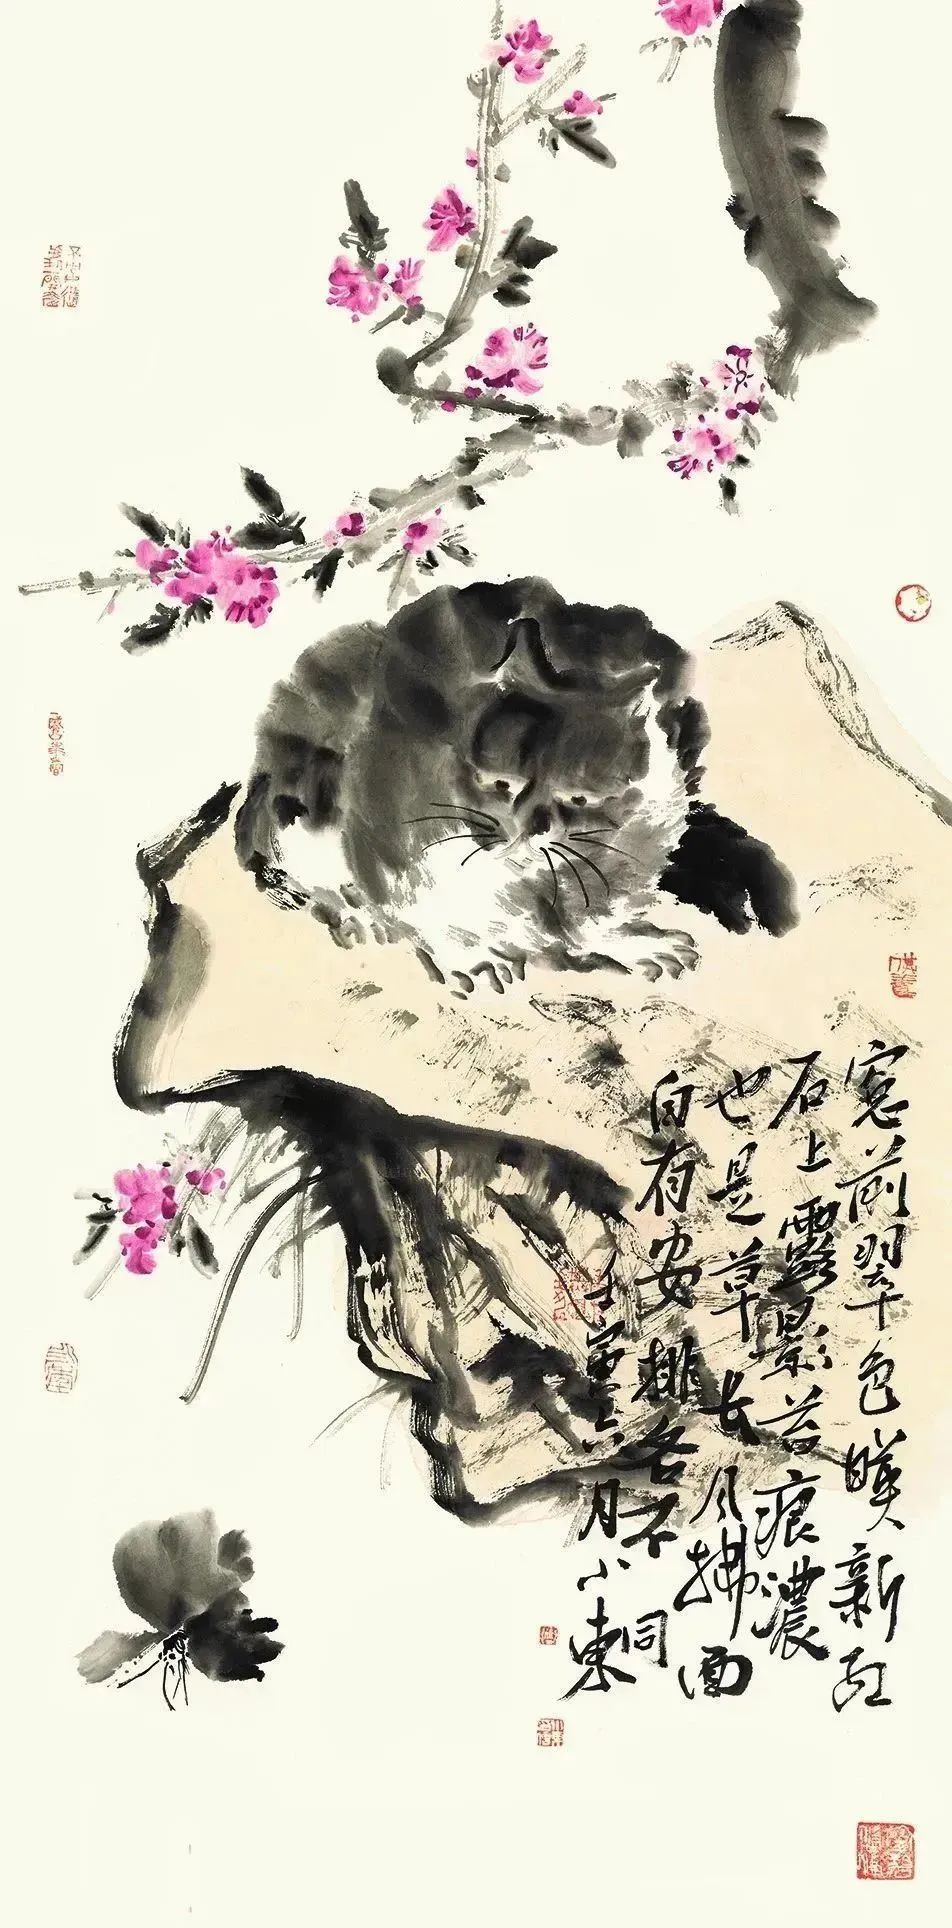 窓前翠色暎新红
石上露影苔痕濃
也是草长风拂面
自有安排各不同
壬寅六月小東